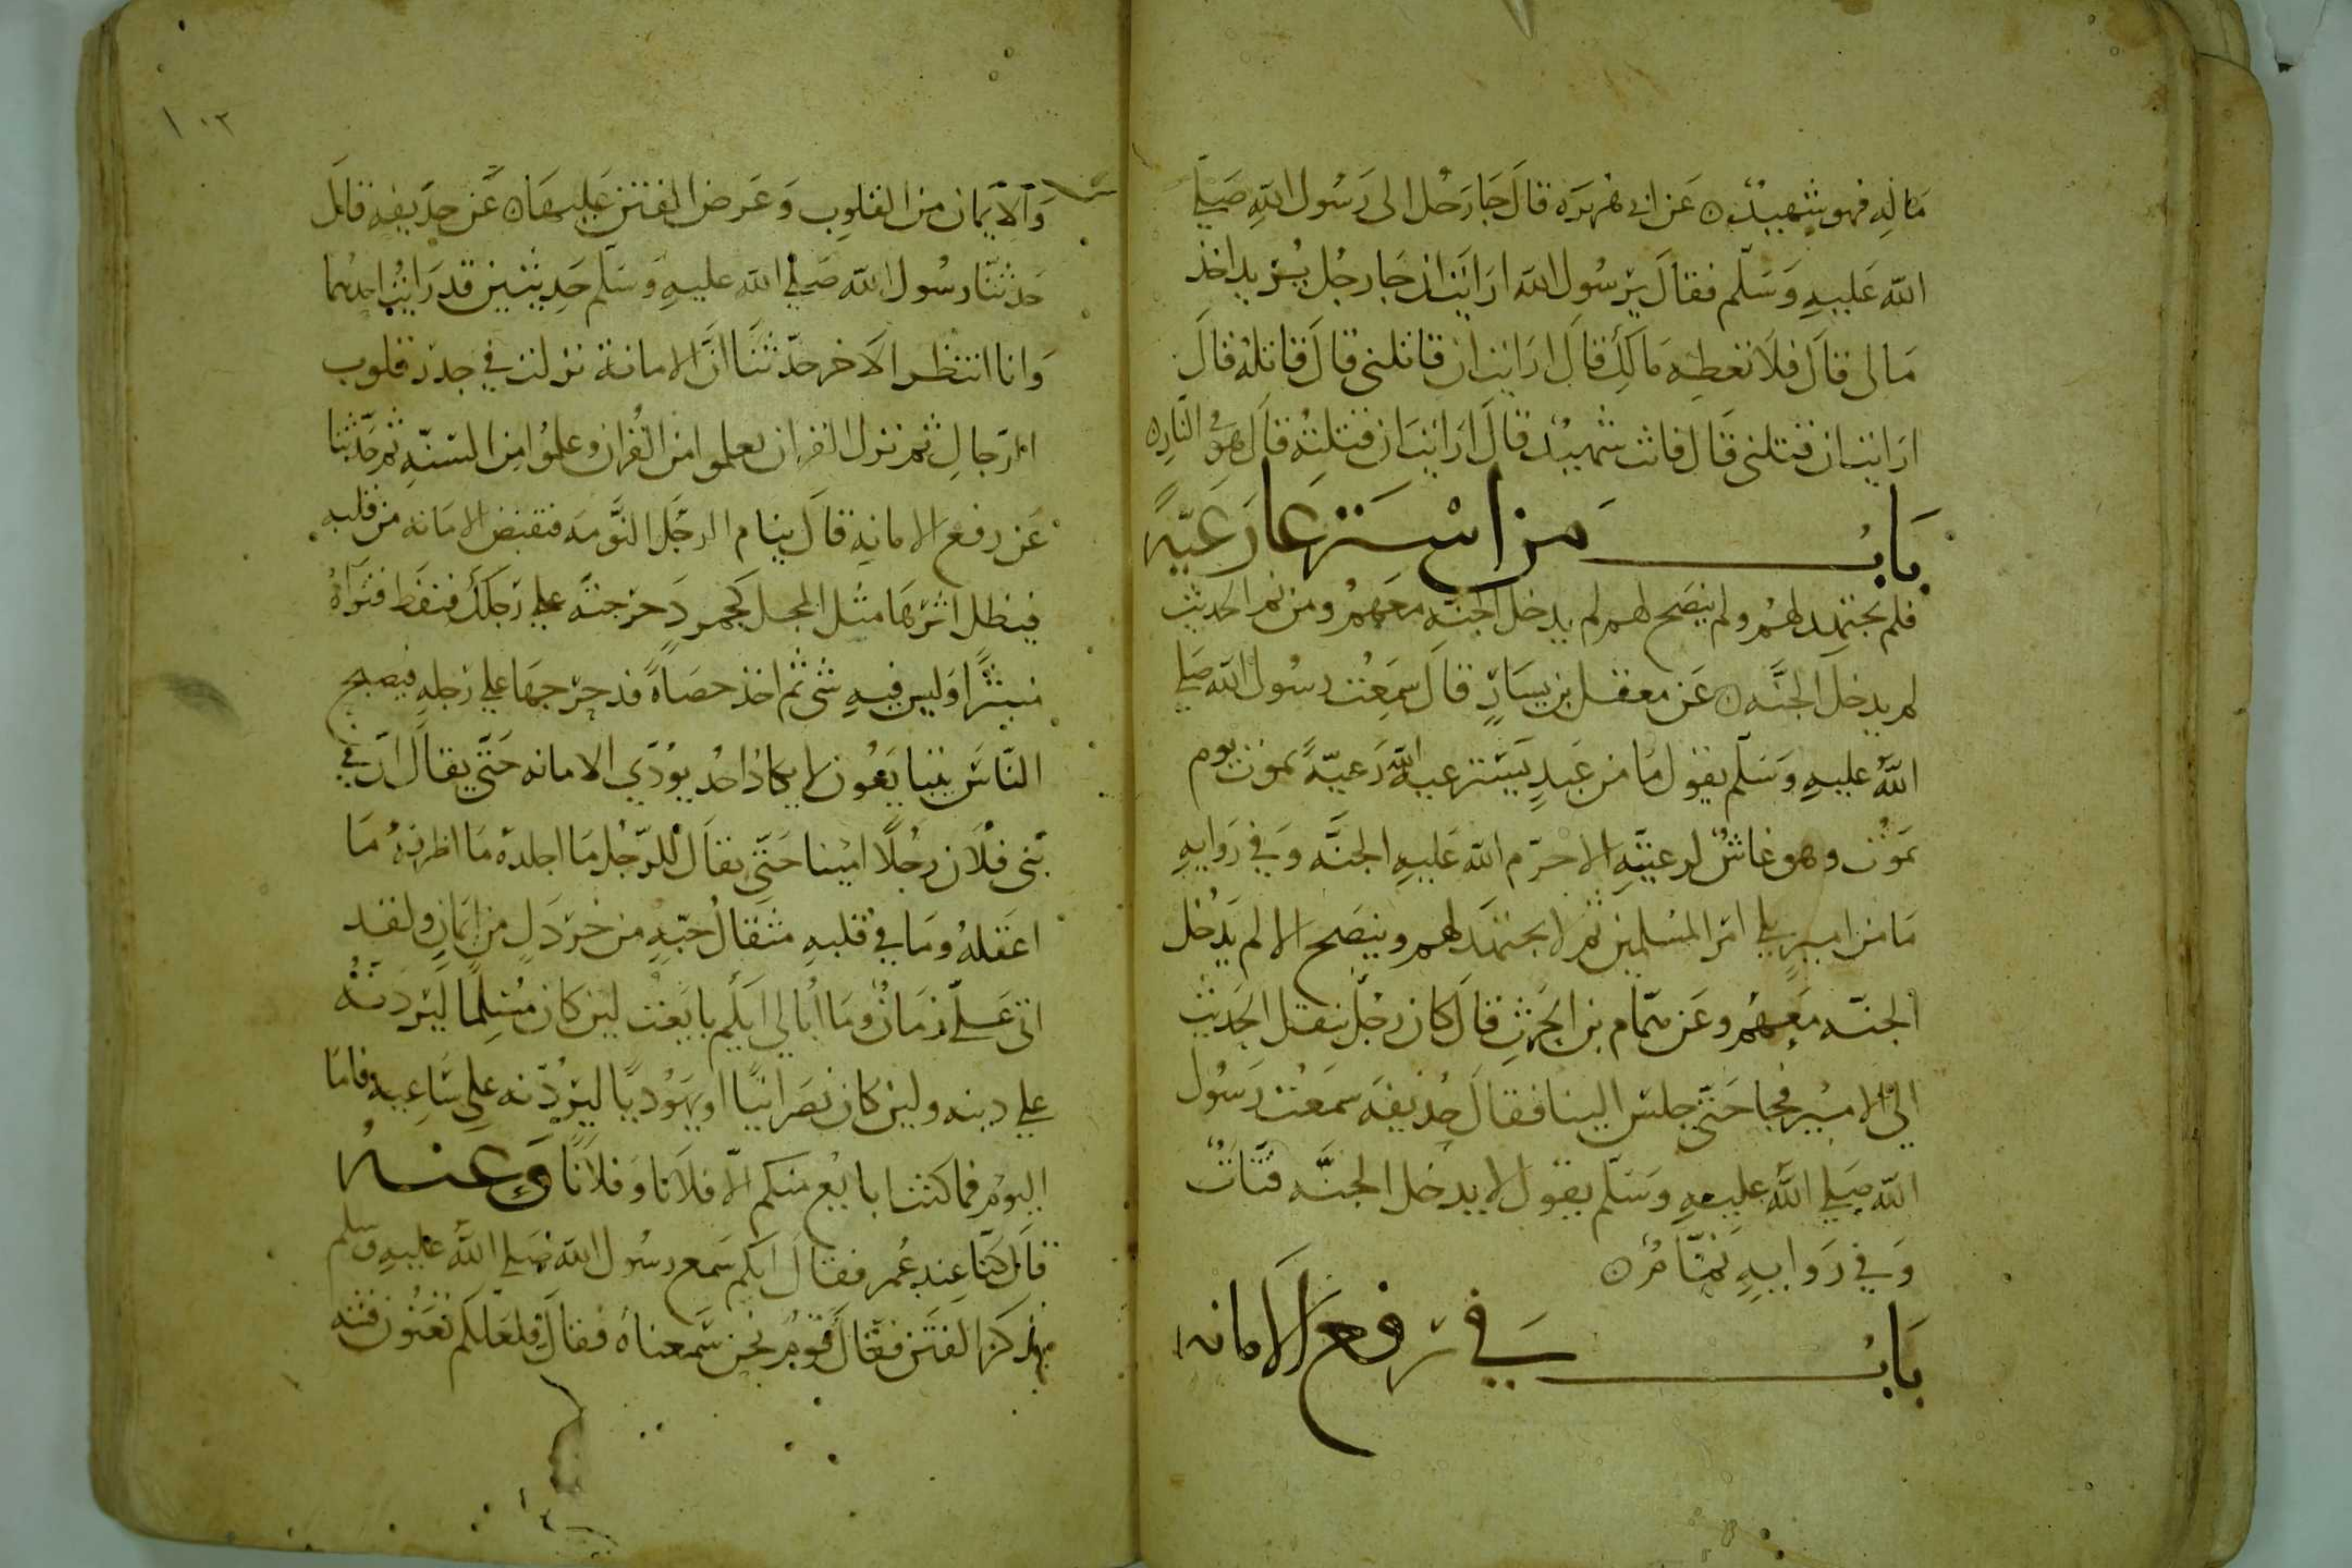 ماله فهو شهيد ٥ عن ابى هريره قال جا رجل الى رسول الله صلى
الله عليه وسلم فقال يرسول الله ارايت ان جا رجل يريد اخذ
مالى قال فلا تعطه مالك قال ارايت ان قاتلنى قال قاتله قال
ارايت ان قتلنى قال فانت شهيد قال ارايت ان قتلته قال هو فى النار ٥
باب من استرعا رعية
فلم يجتهد لهم ولم ينصح لهم لم يدخل الجنه معهم ومن نم الحديث
لم يدخل الجنه ٥ عن معقل بن يسار قال سمعت رسول الله صلى
الله عليه وسلم يقول ما من عبد يسترعيه الله رعية يموت يوم
يموت وهو غاش لرعيته الا حرم الله عليه الجنه وفي روايه
ما من امير يلي امر المسلمين ثم لا يجتهد لهم وينصح الا لم يدخل
الجنه معهم وعن همام بن الحرث قال كان رجل ينقل الحديث
الى الامير فجا حتى جلس الينا فقال حذيفه سمعت رسول
الله صلى الله عليه وسلم يقول لا يدخل الجنه قتات
وفي روايه نمام ٥
باب في رفع الامانه
والايمان من القلوب وعرض الفتن عليها ٥ عن حذيفه قال
حدثنا رسول الله صلى الله عليه وسلم حديثين قد رايت احدهما
وانا انتظر الاخر حدثنا ان الامانة نزلت في جذر قلوب
الرجال ثم نزل القران فعلموا من القران وعلموا من السنه ثم حدثنا
عن رفع الامانه قال ينام الرجل النومه فتقبض الامانه من قلبه
فيظل اثرها مثل المجل كجمر دحرجته على رجلك فنفط فتراه
منتبرا وليس فيه شى ثم اخذ حصاة فدحرجها على رجله فيصبح
الناس يتبايعون لا يكاد احد يودي الامانه حتى يقال ان في
بنى فلان رجلا امينا حتى يقال للرجل ما اجلده ما اظرفه ما
اعقله وما في قلبه مثقال حبه من خردل من ايمان ولقد
اتى على زمان وما ابالي ايكم بايعت لين كان مسلما ليردنه
على دينه ولين كان نصرانيا او يهوديا ليردنه على ساعيه فاما
اليوم فما كنت ابايع منكم الا فلانا وفلانا وعنه
قال كنا عند عمر فقال ايكم سمع رسول الله صلى الله عليه وسلم
يذكر الفتن فقال قوم نحن سمعناه فقال فلعلكم تعنون فتنه
١٠٢